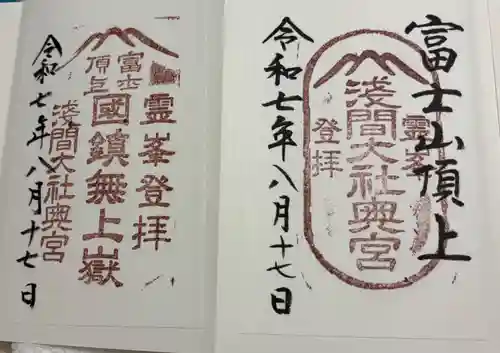 富士山頂上
靈峯登拝
淺間大社奥宮
令和七年八月十七日
靈峯登拝
富士頂上
國鎮無上嶽
淺間大社奥宮
令和七年八月十七日